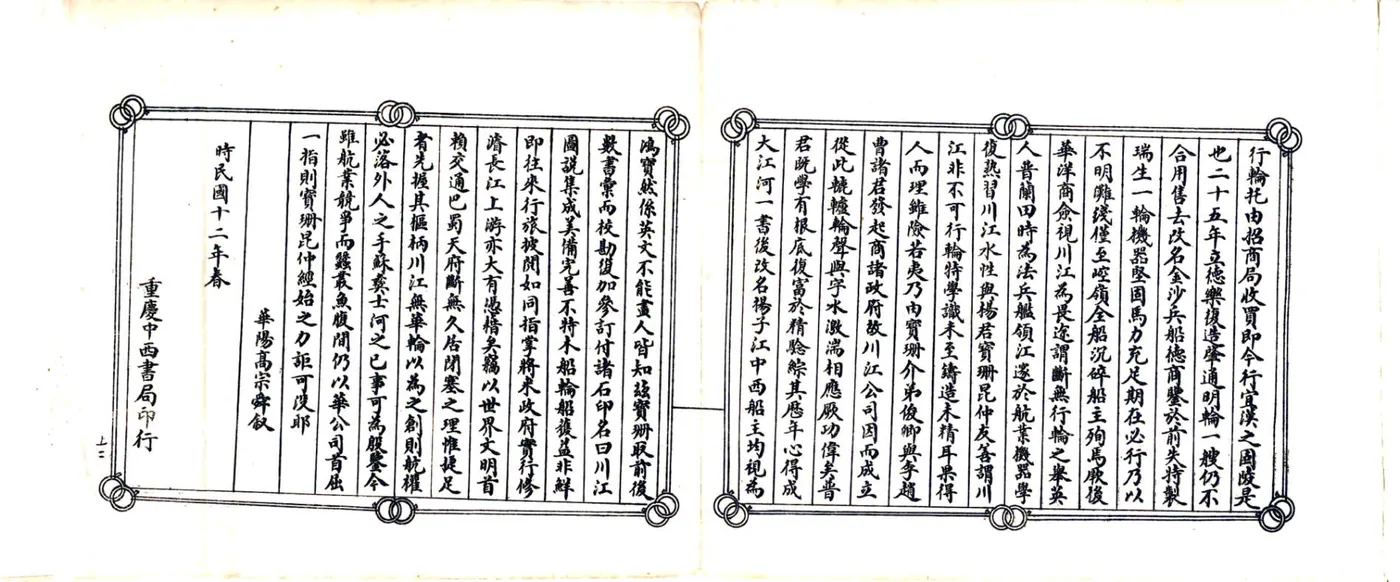 行輪托由招商局收買即今行宜漢之固陵是
也二十五年立德樂復造肇通明輪一艘仍不
合用售去改名金沙兵船德商鑒於前失特製
瑞生一輪機器堅固馬力充足期在必行乃以
不明灘淺僅至崆嶺全船沉碎船主殉焉厥後
華洋商僉視川江為畏途謂斷無行輪之舉英
人普蘭田時為法兵艦領江邃於航業機器學
復熟習川江水性與楊君寶珊昆仲友善謂川
江非不可行輪特學識未至鑄造未精耳果得
人而理雖險若夷乃由寶珊介弟俊卿與李趙
曹諸君發起商諸政府故川江公司因而成立
從此轆轤輪聲與字水激湍相應厥功偉矣普
君既學有根底復富於精驗綜其歷年心得成
大江河一書後改名揚子江中西船主均視為
鴻寶然係英文不能盡人皆知茲寶珊取前後
數書彙而校勘復加參訂付諸石印名曰川江
圖說集成美備完善不特木船輪船獲益非鮮
即往來行旅披閱如同指掌將來政府實行修
濬長江上游亦大有憑藉矣竊以世界文明首
賴交通巴蜀天府斷無久居閉塞之理惟捷足
者先握其樞柄川江無華輪以為之創則航權
必落外人之手蘇彝士河之已事可為殷鑒今
雖航業競爭而蠶叢魚腹間仍以華公司首屈
一指則寶珊昆仲經始之力詎可沒耶
華陽高宗舜敘
時民國十二年春
重慶中西書局印行
上二